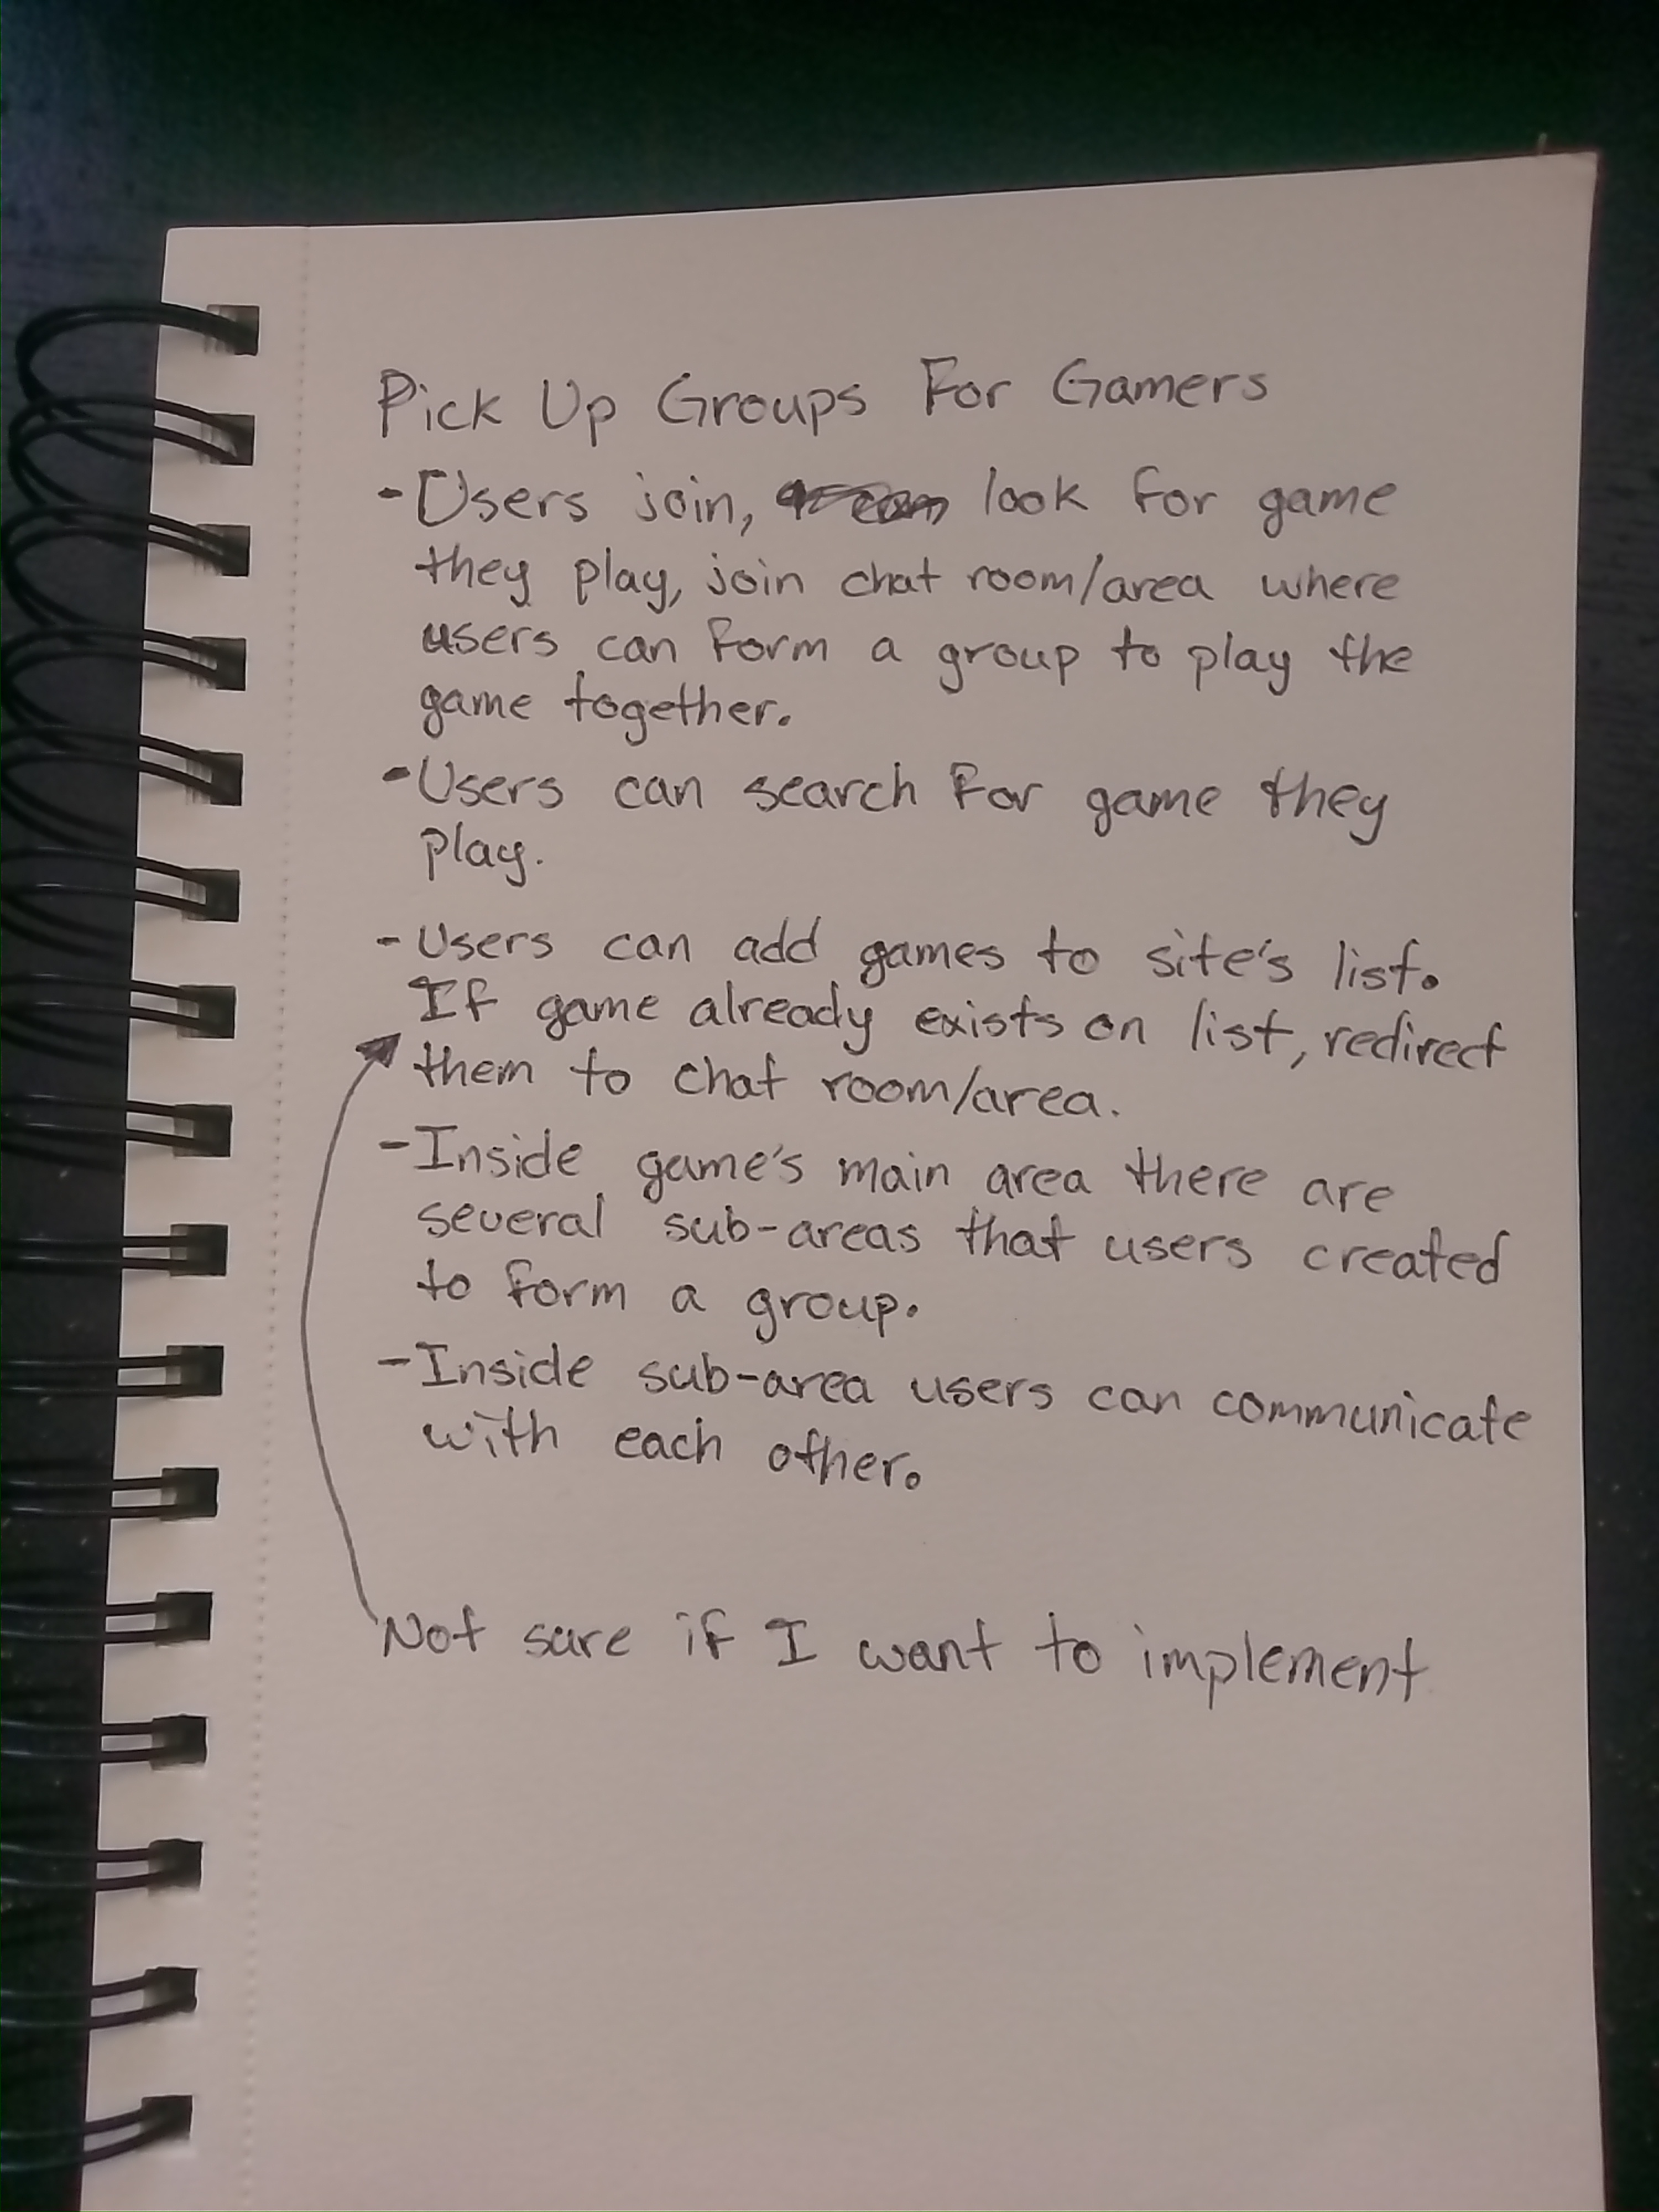 Pick Up Groups For Gamers
- Users join, look for game
they play, join chat room/area where
users can form a group to play the
game together.
- Users can search for game they
play.
- Users can add games to site's list.
If game already exists on list, redirect
them to chat room/area.
- Inside game's main area there are
several sub-areas that users created
to form a group.
- Inside sub-area users can communicate
with each other.
Not sure if I want to implement